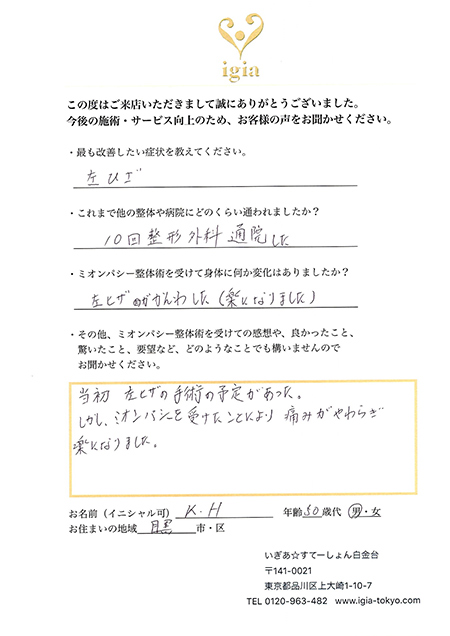 igia
この度はご来店いただきまして誠にありがとうございました。
今後の施術・サービス向上のため、お客様の声をお聞かせください。
・最も改善したい症状を教えてください。
左ひざ
・これまで他の整体や病院にどのくらい通われましたか？
10回整形外科通院した
・ミオンパシー整体術を受けて身体に何か変化はありましたか？
左ヒザのがかんわした（楽になりました）
・その他、ミオンパシー整体術を受けての感想や、良かったこと、
驚いたこと、要望など、どのようなことでも構いませんので
お聞かせください。
当初 左ヒザの手術の予定があった。
しかし、ミオンパシーを受けたことにより 痛みがやわらぎ
楽になりました。
お名前（イニシャル可） K.H 年齢 50歳代 男・女
お住まいの地域 目黒 市・区
いぎあ☆すてーしょん白金台
〒141-0021
東京都品川区上大崎1-10-7
TEL 0120-963-482 www.igia-tokyo.com